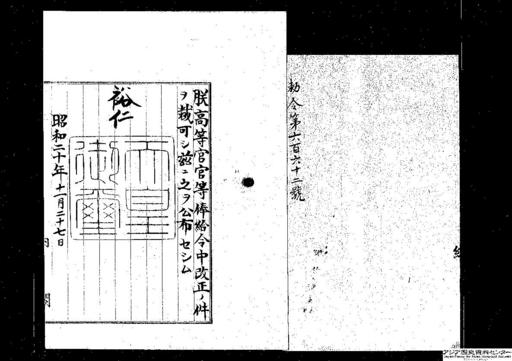 勅令第六百六十二號
朕高等官官等俸給令中改正ノ件
ヲ裁可シ茲ニ之ヲ公布セシム
裕仁
天皇御璽
昭和二十年十一月二十七日
内閣
アジア歴史資料センター